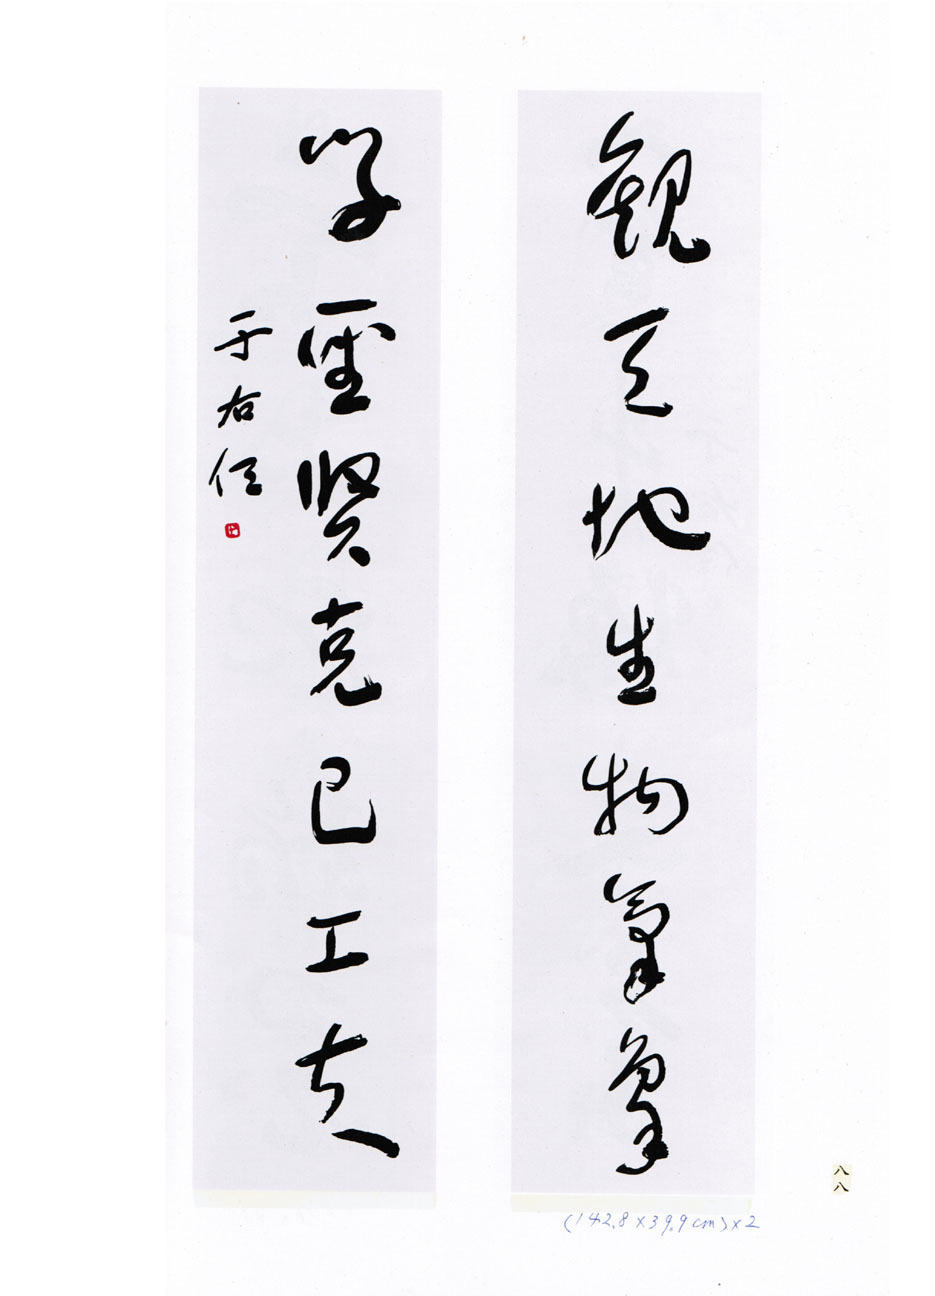 觀天地生物氣象
學聖賢克己工夫
于右任
八八
(142.8×39.9cm)×2